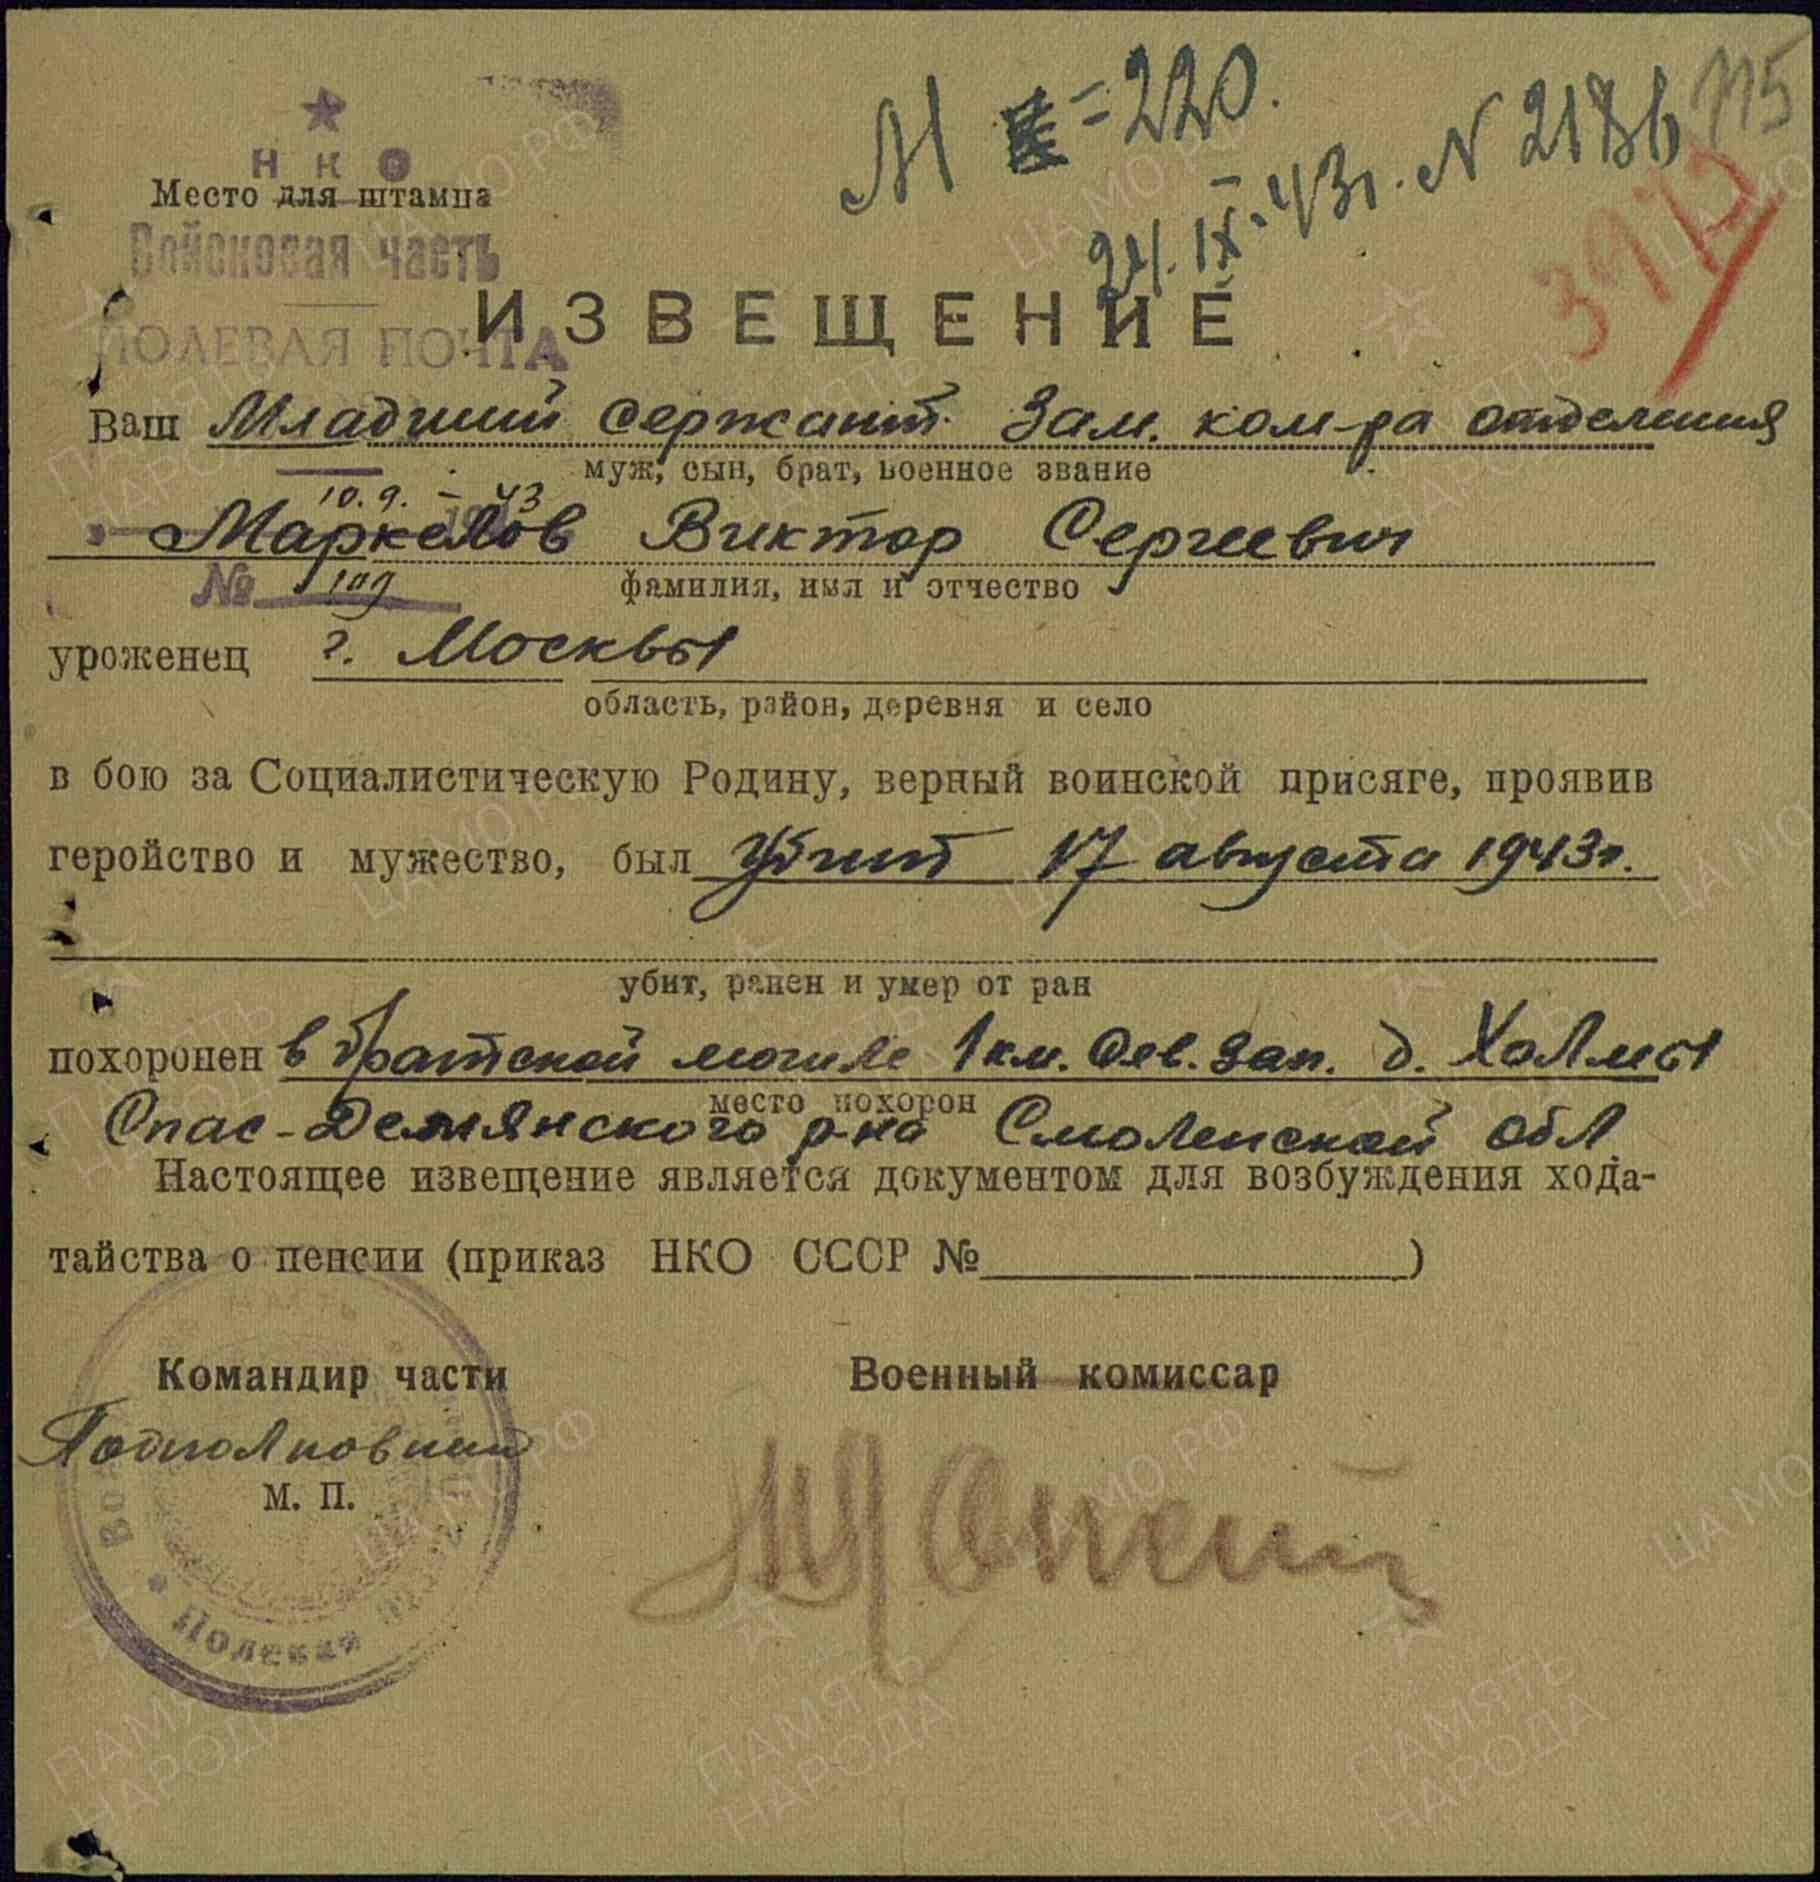 115
М = 220.
24.IX.43г. N 2186
Н К О
Место для штампа
Войсковая часть
ИЗВЕЩЕНИЕ
ПОЛЕВАЯ ПОЧТА
Ваш Младший сержант. Зам. ком-ра отделения
муж, сын, брат, военное звание
10.9. - 43
Маркелов Виктор Сергеевич
№ 109
фамилия, имя и отчество
уроженец г. Москвы
область, район, деревня и село
в бою за Социалистическую Родину, верный воинской присяге, проявив
геройство и мужество, был убит 17 августа 1943г.
убит, ранен и умер от ран
похоронен в братской могиле 1 км. Сев. Зап. д. Холмы
место похорон
Спас-Демянского р-на Смоленской обл
Настоящее извещение является документом для возбуждения хода-
тайства о пенсии (приказ НКО СССР № )
Командир части Военный комиссар
Подполковник
М. П.
Полевая
ПАМЯТЬ НАРОДА
ЦА МО РФ